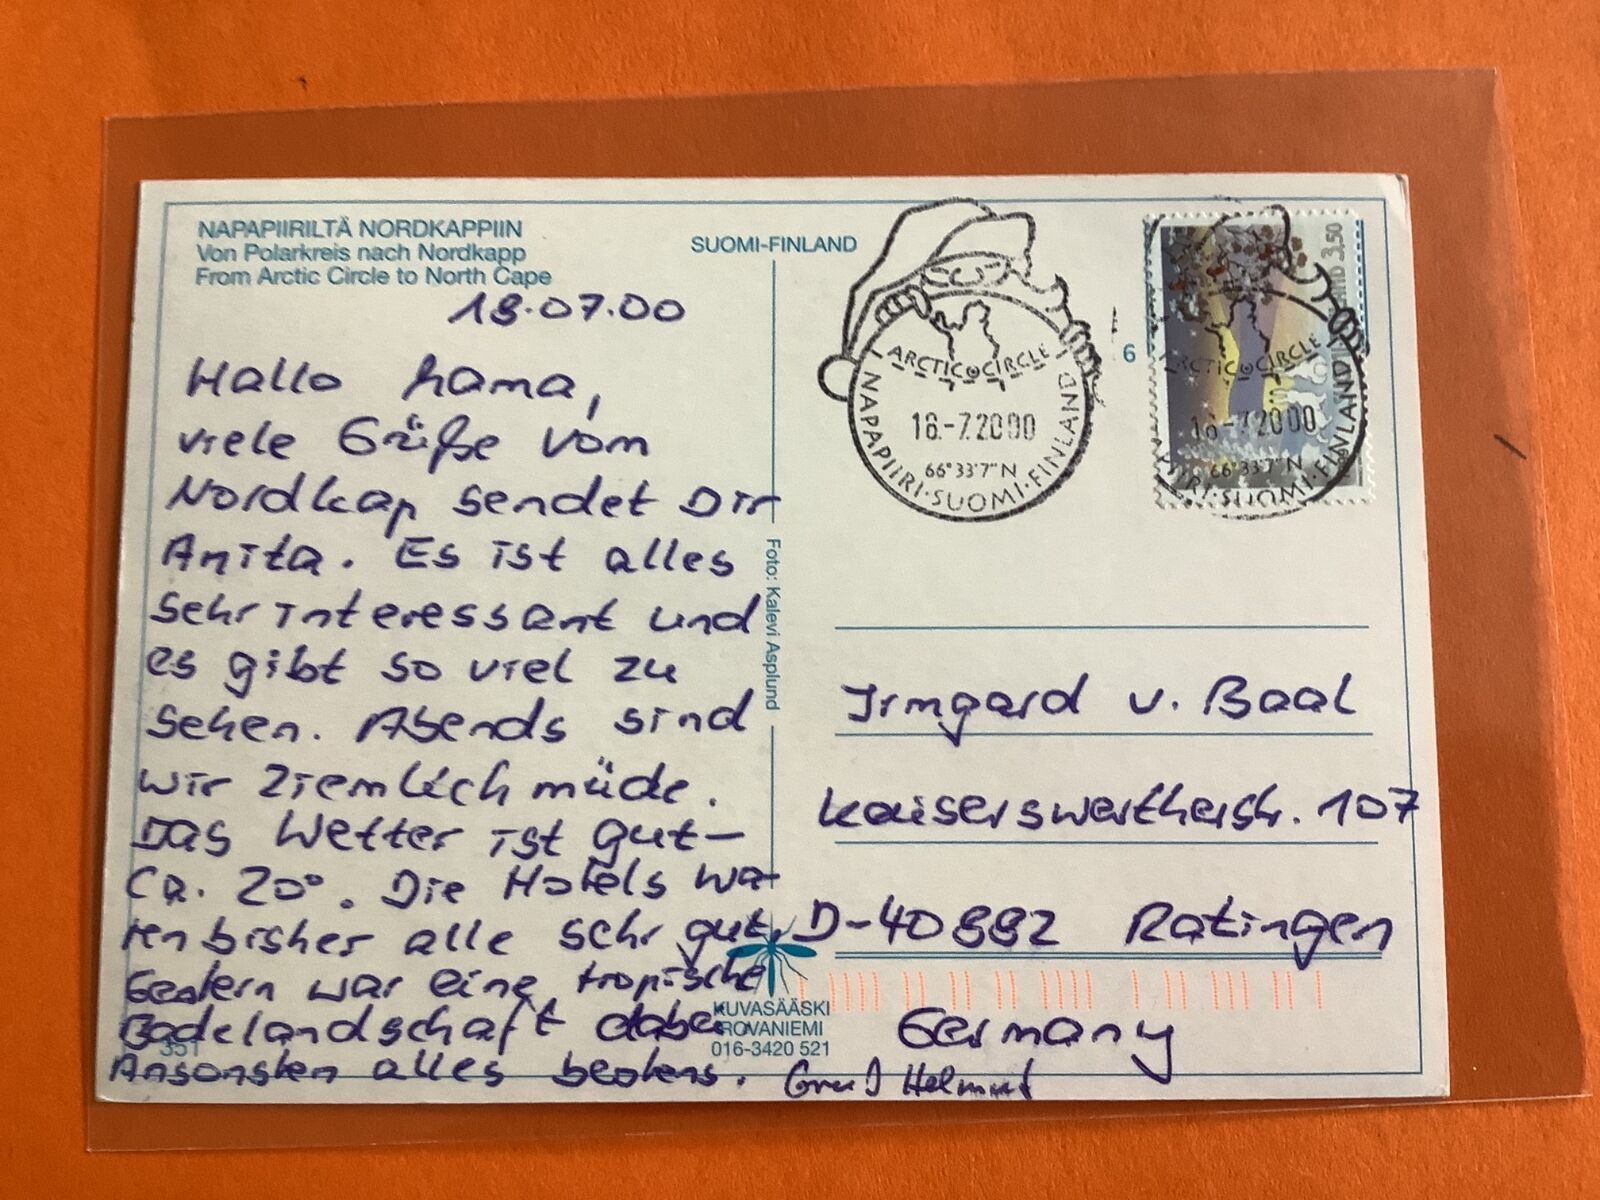 NAPAPIIRILTÄ NORDKAPPIIN
Von Polarkreis nach Nordkapp
From Arctic Circle to North Cape
SUOMI-FINLAND
18.07.00
Hallo Mama,
viele Grüße vom
Nordkap sendet Dir
Anita. Es ist alles
sehr interessant und
es gibt so viel zu
sehen. Abends sind
wir ziemlich müde.
Das Wetter ist gut–
Ca. 20°. Die Hotels wa-
ren bisher alle sehr gut.
Gestern war eine tropische
Badelandschaft dabei
Ansonsten alles bestens. Gruß Helmut
351
Foto: Kalevi Asplund
KUVASÄÄSKI
ROVANIEMI
016-3420 521
ARCTIC CIRCLE
16.-7.2000
66°33'7" N
NAPAPIIRI · SUOMI · FINLAND
6
3,50
ARCTIC CIRCLE
16.-7.2000
66°33'7" N
PIIRI · SUOMI · FINLAND
Irmgard v. Baal
Kaiserswertherstr. 107
D-40882 Ratingen
Germany